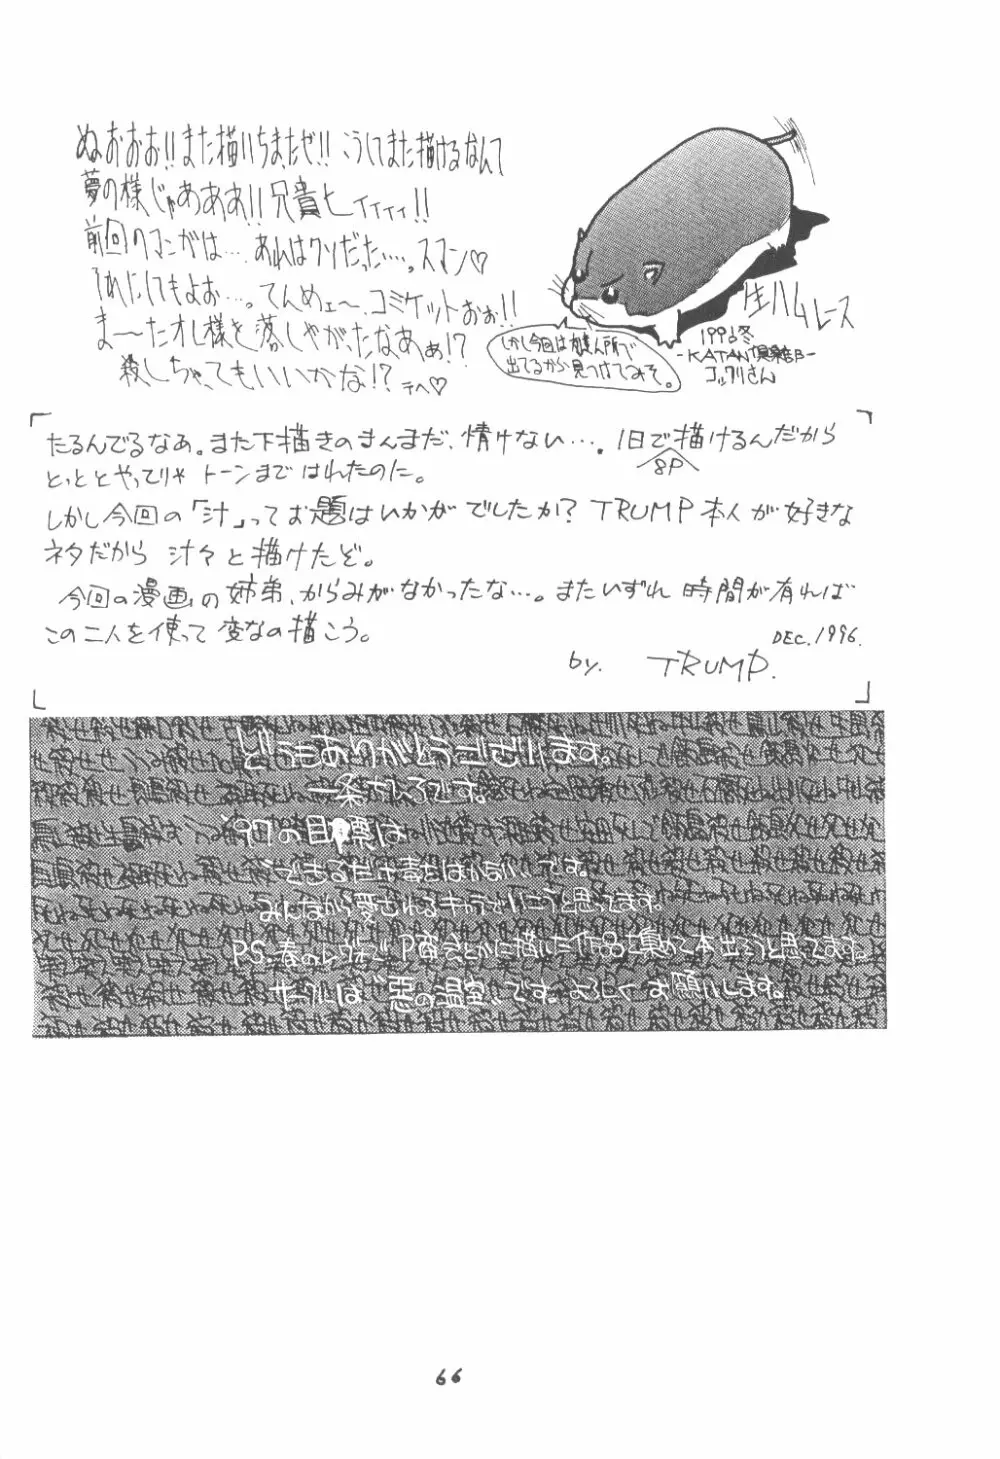 ぬおおお!!また描いちまたゼ!!こうしてまた描けるなんて
夢の様じゃあああ!!兄貴ヒィィィィ!!
前回のマンガは…あれはクソだった…。スマン♡
それにしてもよお…。てんめェ〜コミケットおぉ!!
ま〜たオレ様を落しゃがったなあぁ!?
殺しちゃってもいいかな!?テヘ♡
しかし今回は
出てるから見つけてみそ。
生ハムレース
1996冬
-KATAN倶楽部-
コックリさん
たるんでるなぁ。また下描きのまんまだ、情けない…。1日で描けるんだから
8P
とっととやってりゃトーンまではれたのに。
しかし今回の「汁」ってお題はいかがでしたか?TRUMP本人が好きな
ネタだから汁々と描けたぞ。
今回の漫画の姉弟、からみがなかったな…。またいずれ時間が有れば
この二人を使って変なの描こう。
DEC.1996.
by. TRUMP.
どうもありがとうございます。
一条かしろです。
'97の目標は
できるだけ毒をはかない、です。
みんなから愛されるキャラでいこうと思ってます。
P.S.春のレヴォでP商会とかに描いた作品を集めて本出そうと思ってます。
サークルは「悪の温室」です。よろしくお願いします。
66